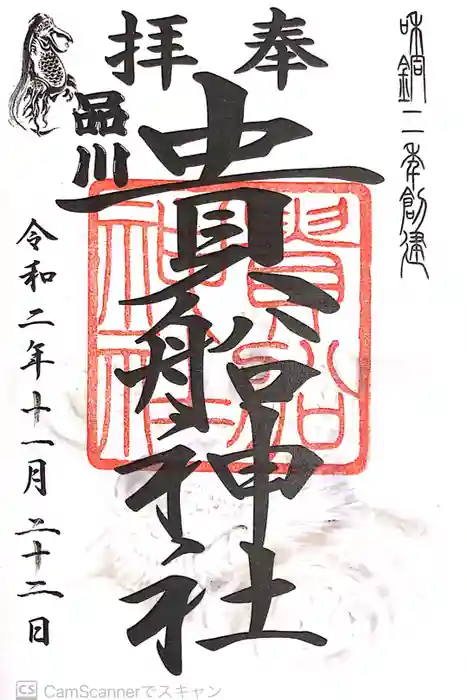 和銅二年創建
奉拝
品川
貴船神社
貴船神社
令和二年十一月二十二日
CamScannerでスキャン